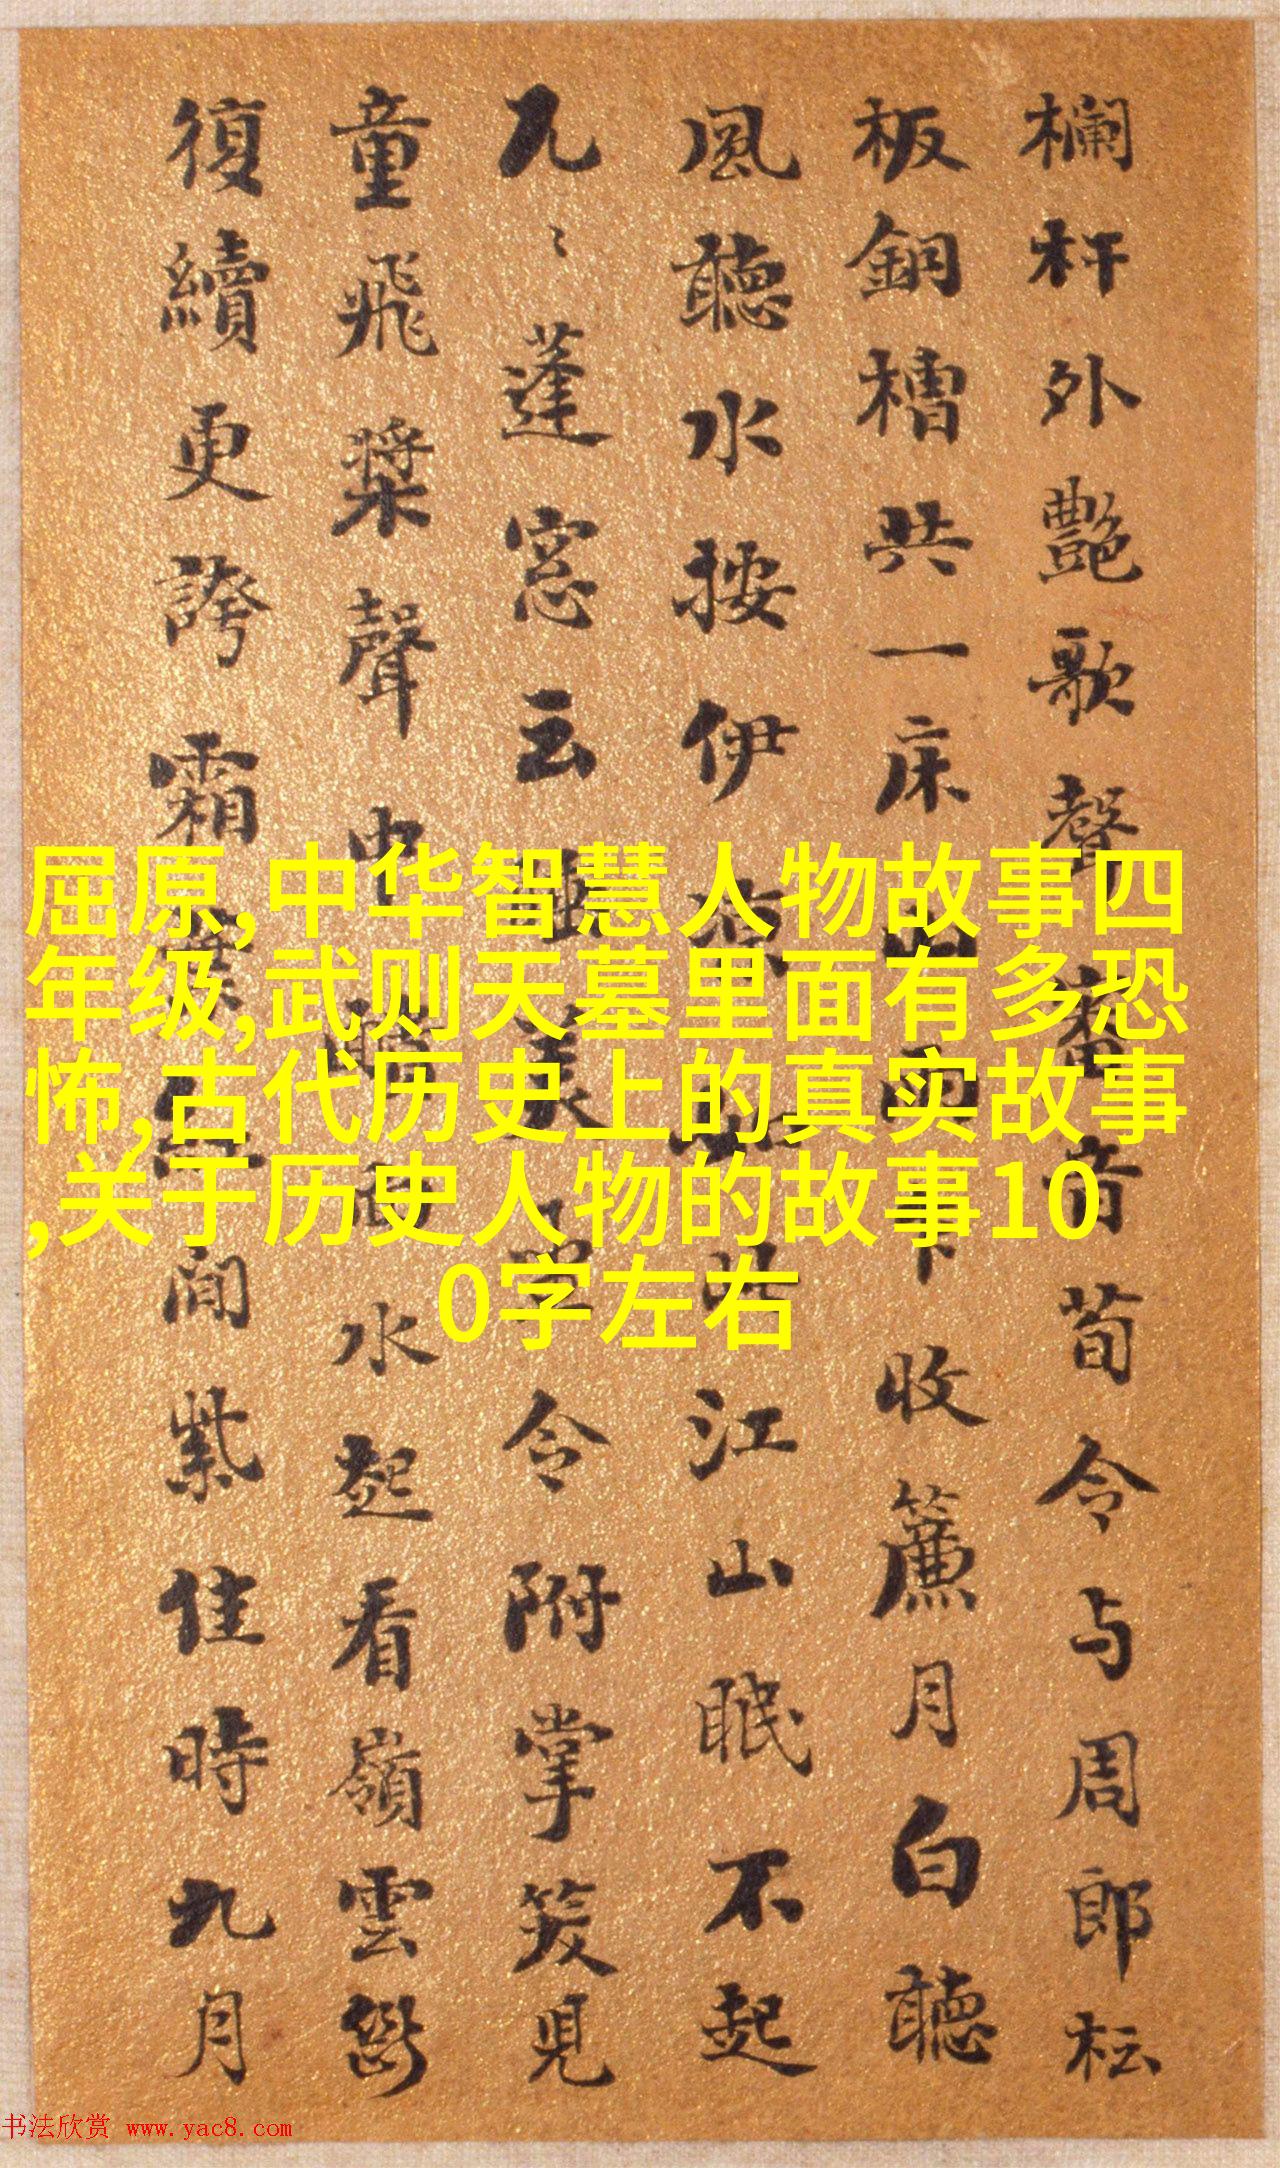 欄杆外艷歌聲審音荀令与周郎枟
板銅槽共一床山雨下收簾月白聽
風聽水按伊凉如此江山眠不起
九〻蓬窓云美令附掌笑見
童飛槳聲中水起看嶺雲
復續更誇霜葉紅間紫佳時九月
屈原,中华智慧人物故事四
年级,武则天墓里面有多恐
怖,古代历史上的真实故事
,关于历史人物的故事10
0字左右
书法欣赏 www.yac8.com